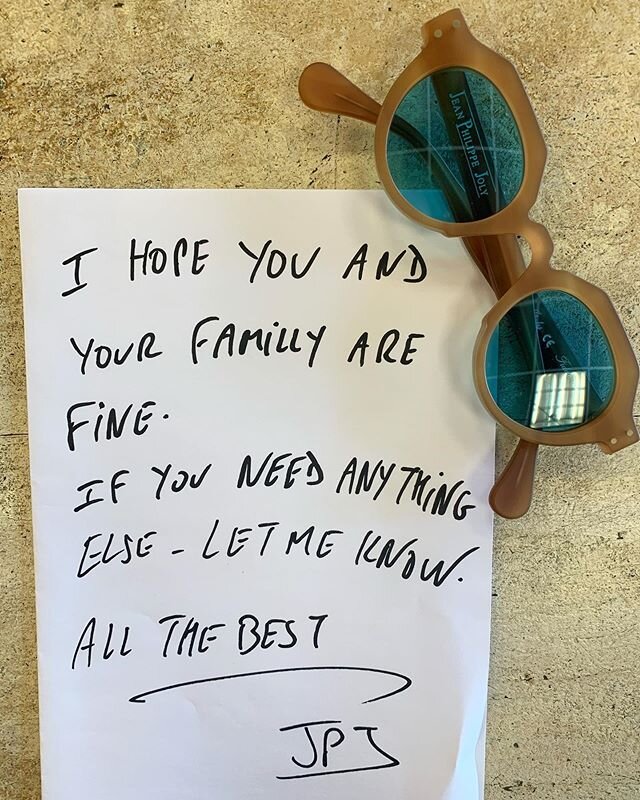 JEAN PHILIPPE JOLY
CE
I HOPE YOU AND
YOUR FAMILLY ARE
FINE.
IF YOU NEED ANYTHING
ELSE - LET ME KNOW.
ALL THE BEST
JPJ